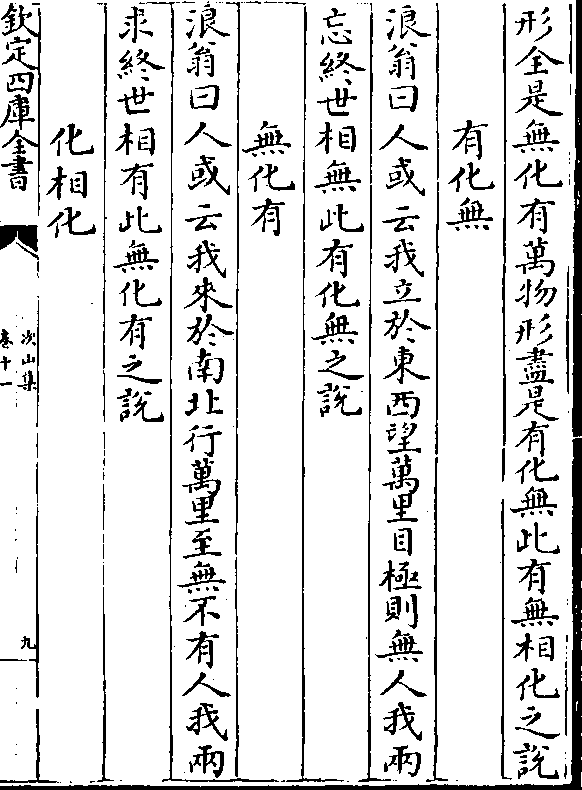 形全是無化有萬物形盡是有化無此有無相化之說
有化無
浪翁曰人或云我立於東西望萬里目極則無人我兩
忘終世相無此有化無之說
無化有
浪翁曰人或云我來於南北行萬里至無不有人我兩
求終世相有此無化有之說
化相化
欽定四庫全書
次山集
卷十一
九